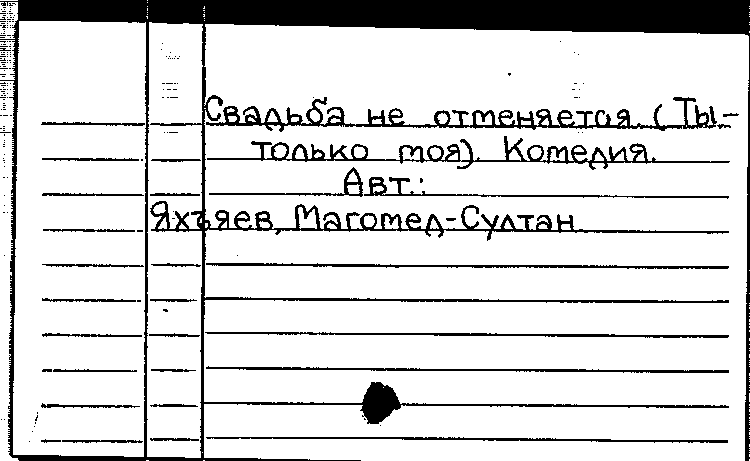 Свадьба не отменяется. (Ты-
только моя). Комедия.
Авт.:
Яхъяев, Магомед-Султан